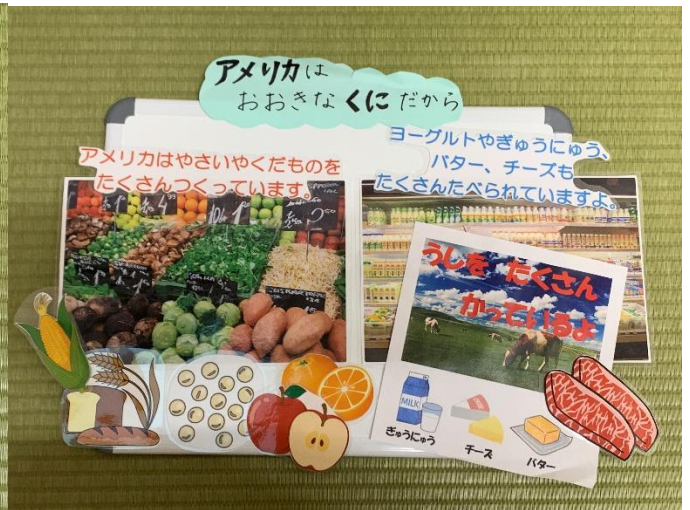 アメリカは
おおきなくにだから
アメリカはやさいやくだものを
たくさんつくっています。
ヨーグルトやぎゅうにゅう、
バター、チーズも
たくさんたべられていますよ。
うしを たくさん
かっているよ
MILK
ぎゅうにゅう
チーズ
バター